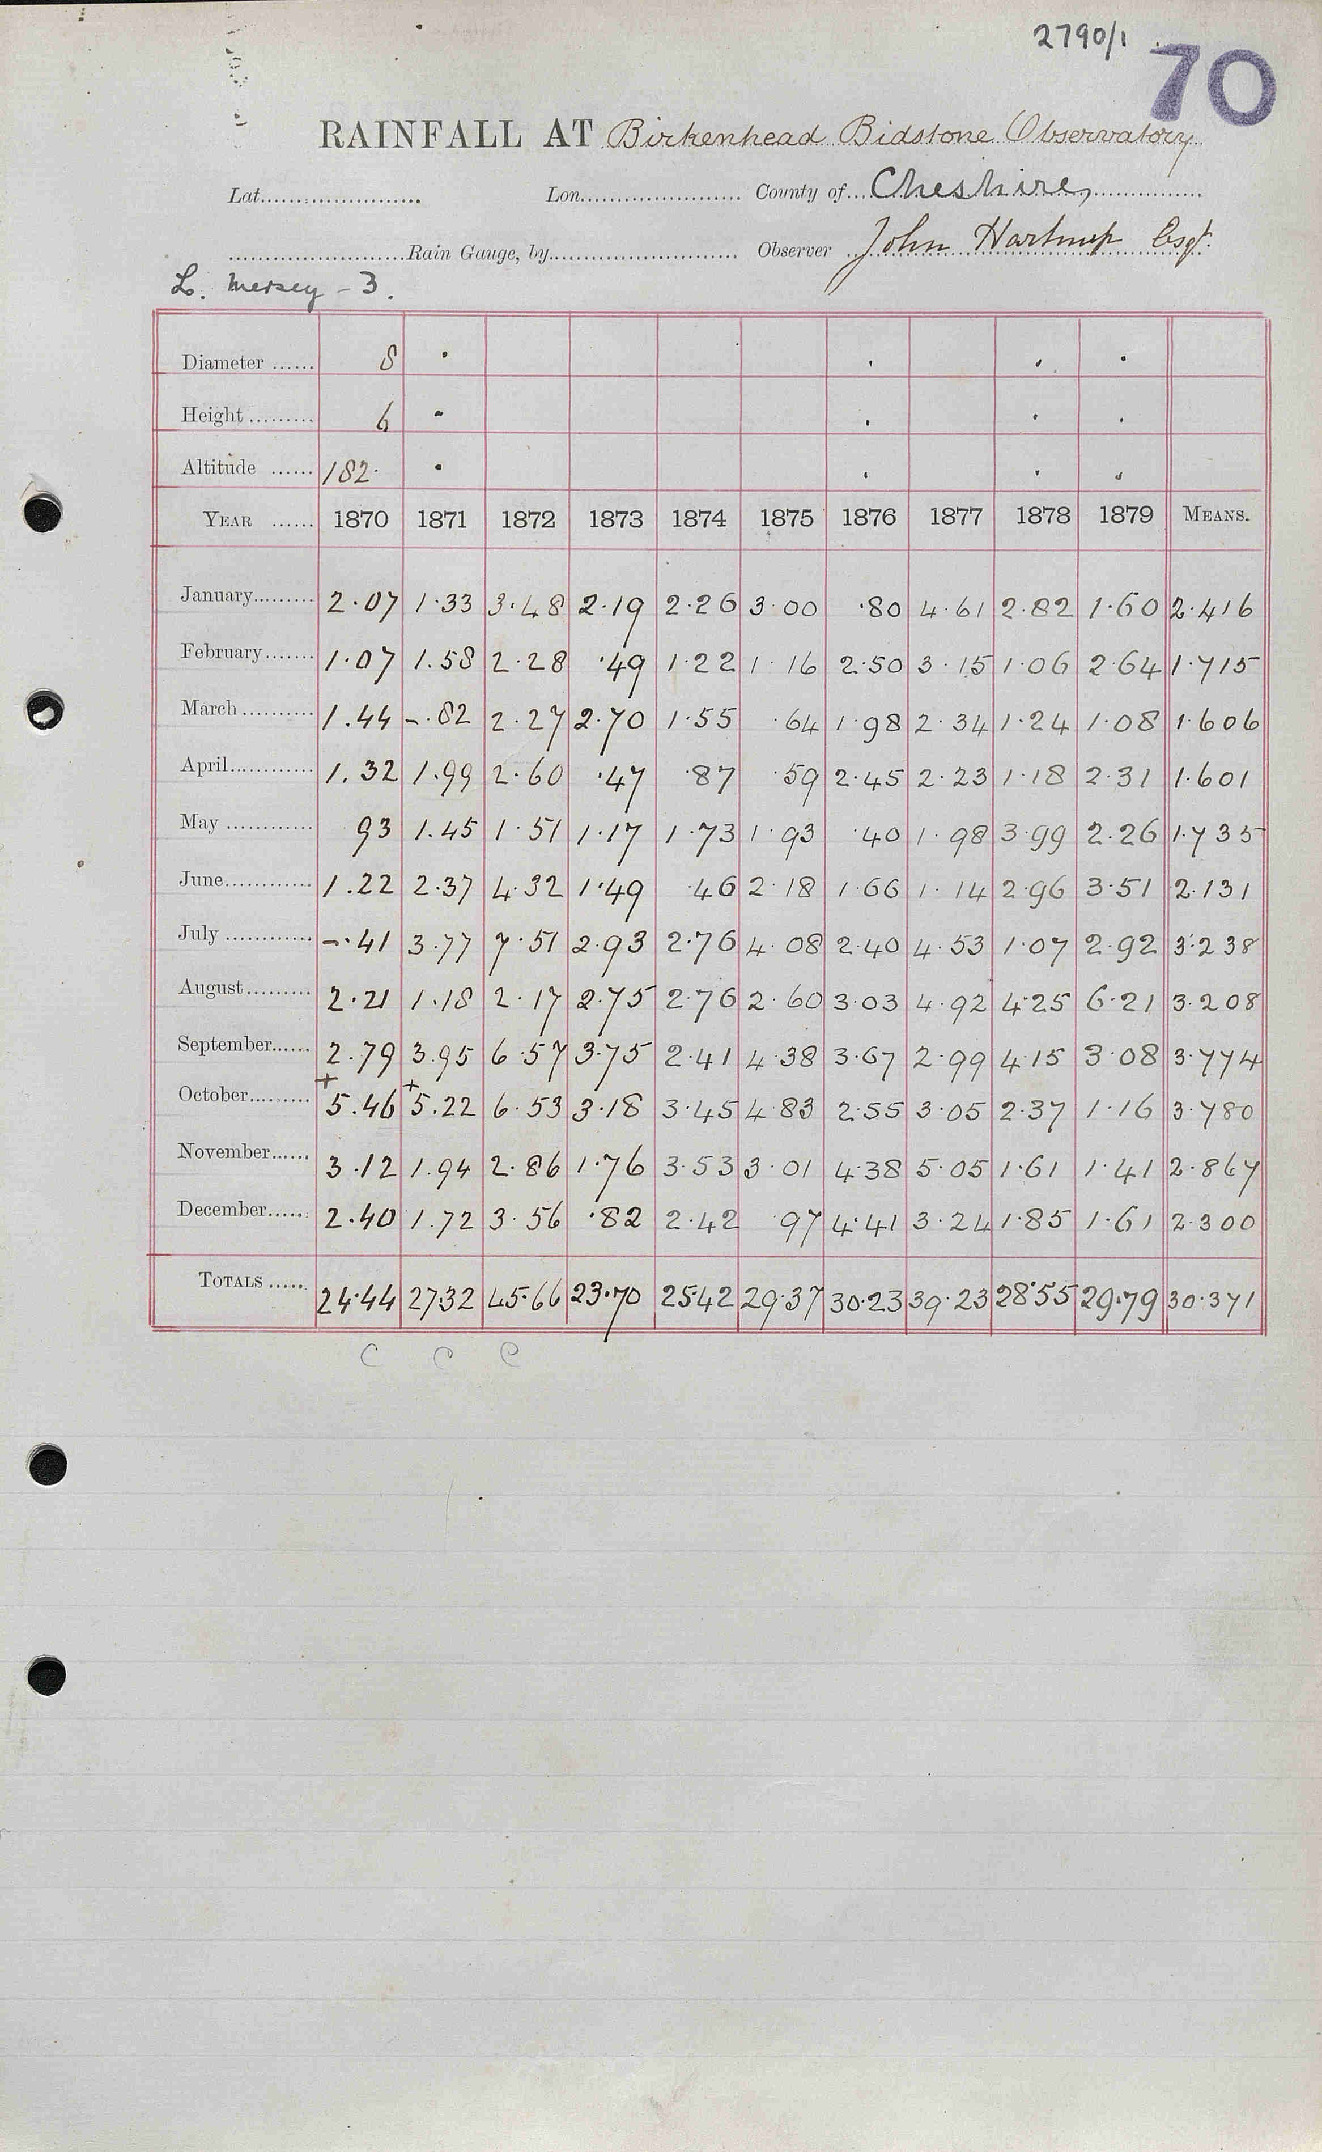 2790/1
70
RAINFALL AT Birkenhead Bidstone Observatory
Lat. Lon. County of Cheshire
Rain Gauge, by Observer John Hartnup Esqr.
L. Mersey - 3.
Diameter 8 . . . .
Height 6 . . . .
Altitude 182 . . . .
YEAR 1870 1871 1872 1873 1874 1875 1876 1877 1878 1879 MEANS.
January 2.07 1.33 3.48 2.19 2.26 3.00 .80 4.61 2.82 1.60 2.416
February 1.07 1.58 2.28 .49 1.22 1.16 2.50 3.15 1.06 2.64 1.715
March 1.44 -.82 2.27 2.70 1.55 .64 1.98 2.34 1.24 1.08 1.606
April 1.32 1.99 2.60 .47 .87 .59 2.45 2.23 1.18 2.31 1.601
May 93 1.45 1.51 1.17 1.73 1.93 .40 1.98 3.99 2.26 1.735
June 1.22 2.37 4.32 1.49 .46 2.18 1.66 1.14 2.96 3.51 2.131
July -.41 3.77 7.51 2.93 2.76 4.08 2.40 4.53 1.07 2.92 3.238
August 2.21 1.18 2.17 2.75 2.76 2.60 3.03 4.92 4.25 6.21 3.208
September 2.79 3.95 6.57 3.75 2.41 4.38 3.67 2.99 4.15 3.08 3.774
October +5.46 +5.22 6.53 3.18 3.45 4.83 2.55 3.05 2.37 1.16 3.780
November 3.12 1.94 2.86 1.76 3.53 3.01 4.38 5.05 1.61 1.41 2.867
December 2.40 1.72 3.56 .82 2.42 .97 4.41 3.24 1.85 1.61 2.300
TOTALS 24.44 27.32 45.66 23.70 25.42 29.37 30.23 39.23 28.55 29.79 30.371
C C C